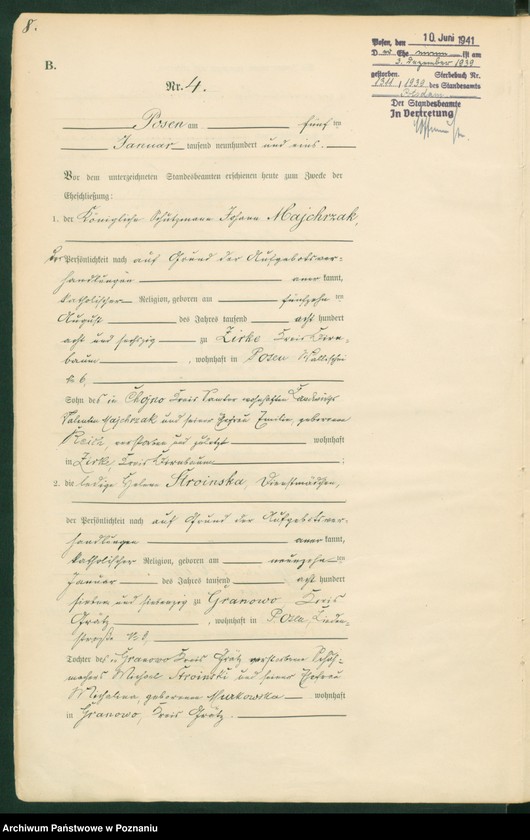 8.
Posen, den 10. Juni 1941
ist am
3. Dezember 1939
gestorben. Sterbebuch Nr.
1311, 1939 des Standesamts
Der Standesbeamte
In Vertretung
B.
Nr. 4.
Posen am fünf ten
Januar tausend neunhundert und eins.
Vor dem unterzeichneten Standesbeamten erschienen heute zum Zwecke der
Eheschließung:
1. der Königliche Schutzmann Johann Majchrzak,
der Persönlichkeit nach auf Grund der Aufgebotsver-
handlungen aner kannt,
katholischer Religion, geboren am fünfzehn ten
August des Jahres tausend acht hundert
acht und sechzig zu Zirke Kreis Birn-
baum, wohnhaft in Posen Wallischei
№ 6,
Sohn des in Chojno Kreis Samter wohnhaften Landwirts
Valentin Majchrzak und seiner Ehefrau Emilie, geborenen
verstorben und zuletzt wohnhaft
in Zirke, Kreis Birnbaum;
2. die ledige Helene Stroinska, Dienstmädchen,
der Persönlichkeit nach auf Grund der Aufgebotsver-
handlungen aner kannt,
katholischer Religion, geboren am neunzehn ten
Januar des Jahres tausend acht hundert
sieben und siebenzig zu Granowo Kreis
Grätz, wohnhaft in Posen, Linden-
straße №
Tochter des in Granowo Kreis Grätz verstorbenen Schuh-
machers Michael Stroinski und seiner Ehefrau
Michalina, geborenen Murkowska wohnhaft
in Granowo, Kreis Grätz.
Archiwum Państwowe w Poznaniu